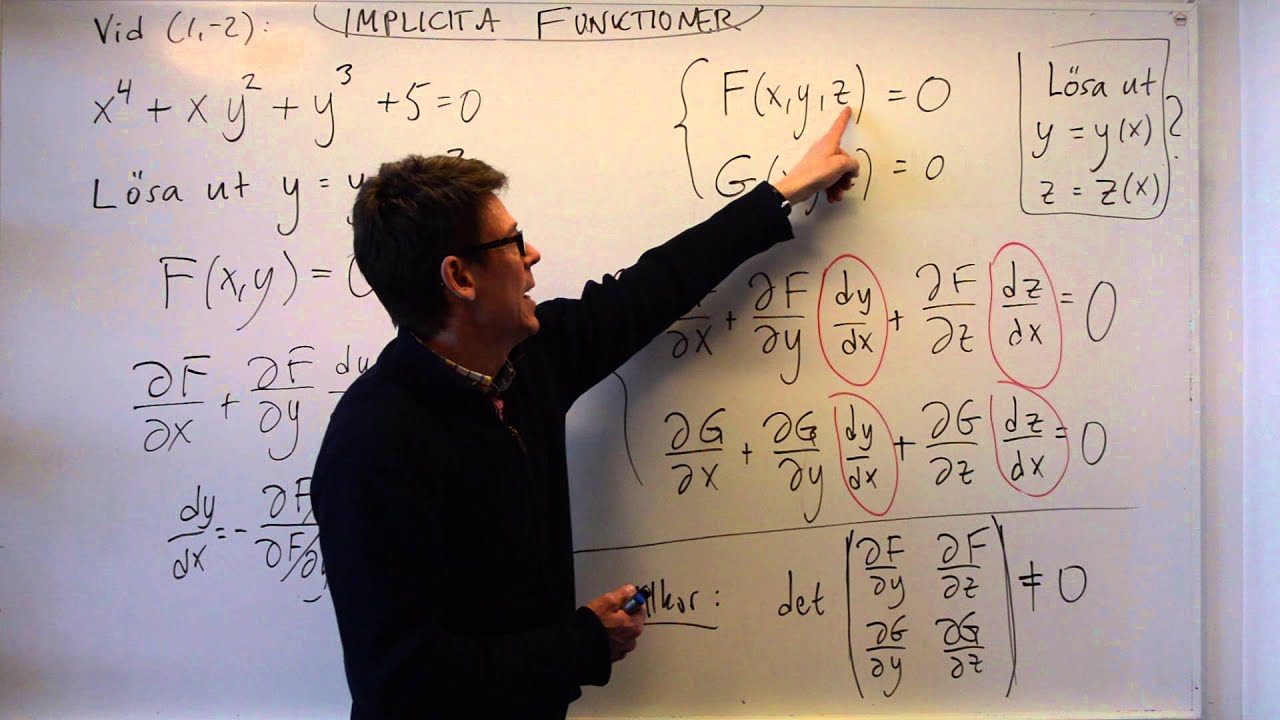 Vid (1,-2):
IMPLICITA FUNKTIONER
x⁴ + x y² + y³ + 5 = 0
Lösa ut y = y ?
F(x,y) = 0
∂F/∂x + ∂F/∂y dy
dy/dx = - ∂F/ ∂F/∂y
F(x,y,z) = 0
G( ) = 0
Lösa ut
y = y(x) ?
z = z(x)
∂x + ∂F/∂y dy/dx + ∂F/∂z dz/dx = 0
∂G/∂x + ∂G/∂y dy/dx + ∂G/∂z dz/dx = 0
lkor: det | ∂F/∂y ∂F/∂z | ≠ 0
∂G/∂y ∂G/∂z